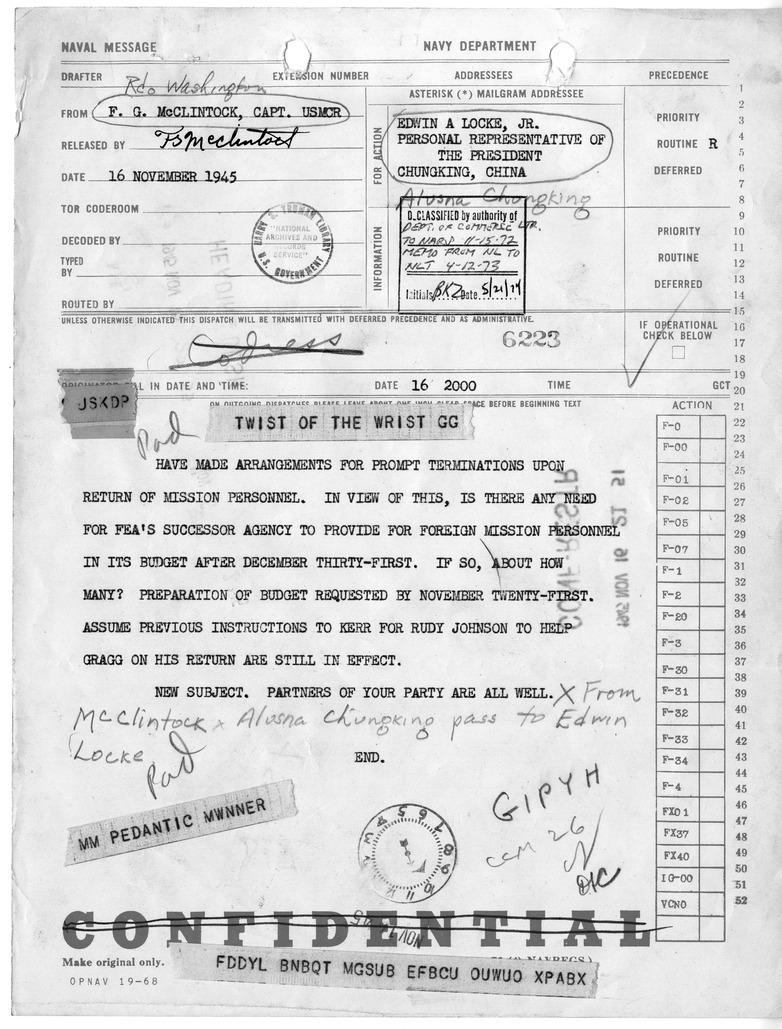 NAVAL MESSAGE NAVY DEPARTMENT
DRAFTER EXTENSION NUMBER ADDRESSEES PRECEDENCE
Rdo Washington
FROM F. G. McCLINTOCK, CAPT. USMCR
RELEASED BY FG McClintock
DATE 16 NOVEMBER 1945
TOR CODEROOM
DECODED BY
TYPED BY
ROUTED BY
HARRY S. TRUMAN LIBRARY
"NATIONAL ARCHIVES AND RECORDS SERVICE"
U.S. GOVERNMENT
ASTERISK (*) MAILGRAM ADDRESSEE
FOR ACTION
EDWIN A LOCKE, JR.
PERSONAL REPRESENTATIVE OF
THE PRESIDENT
CHUNGKING, CHINA
Alusna Chungking
INFORMATION
DECLASSIFIED by authority of
DEPT. OF COMMERCE LTR.
TO NARS 11-15-72
MEMO FROM NL TO
NLT 4-12-73
Initials BKZ Date 5/21/74
PRIORITY
ROUTINE R
DEFERRED
PRIORITY
ROUTINE
DEFERRED
UNLESS OTHERWISE INDICATED THIS DISPATCH WILL BE TRANSMITTED WITH DEFERRED PRECEDENCE AND AS ADMINISTRATIVE.
IF OPERATIONAL
CHECK BELOW
Codress
6223
FILL IN DATE AND TIME: DATE 16 2000 TIME GCT
ON OUTGOING DISPATCHES PLEASE LEAVE ABOUT ONE INCH CLEAR SPACE BEFORE BEGINNING TEXT
JSKDP
Pad
TWIST OF THE WRIST GG
HAVE MADE ARRANGEMENTS FOR PROMPT TERMINATIONS UPON
RETURN OF MISSION PERSONNEL. IN VIEW OF THIS, IS THERE ANY NEED
FOR FEA'S SUCCESSOR AGENCY TO PROVIDE FOR FOREIGN MISSION PERSONNEL
IN ITS BUDGET AFTER DECEMBER THIRTY-FIRST. IF SO, ABOUT HOW
MANY? PREPARATION OF BUDGET REQUESTED BY NOVEMBER TWENTY-FIRST.
ASSUME PREVIOUS INSTRUCTIONS TO KERR FOR RUDY JOHNSON TO HELP
GRAGG ON HIS RETURN ARE STILL IN EFFECT.
NEW SUBJECT. PARTNERS OF YOUR PARTY ARE ALL WELL. X From
McClintock x Alusna Chungking pass to Edwin
Locke
Pad
END.
1945 NOV 16 21 51
MM PEDANTIC MWNNER
GIPYH
CCM 26
CONFIDENTIAL
NOV 17
Make original only.
OPNAV 19-68
FDDYL BNBQT MGSUB EFBCU OUWUO XPABX
ACTION
F-0
F-00
F-01
F-02
F-05
F-07
F-1
F-2
F-20
F-3
F-30
F-31
F-32
F-33
F-34
F-4
FX01
FX37
FX40
IG-00
VCNO
1
2
3
4
5
6
7
8
9
10
11
12
13
14
15
16
17
18
19
20
21
22
23
24
25
26
27
28
29
30
31
32
33
34
35
36
37
38
39
40
41
42
43
44
45
46
47
48
49
50
51
52